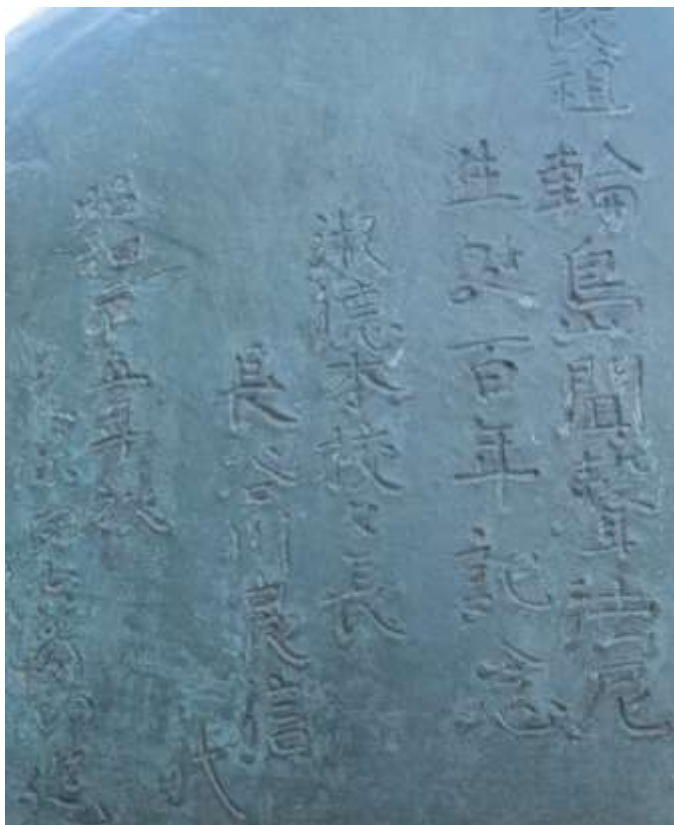 校祖 輪島聞聲法尼
生誕百年記念
淑徳本校々長
長谷川良信
代
昭和二十五年秋